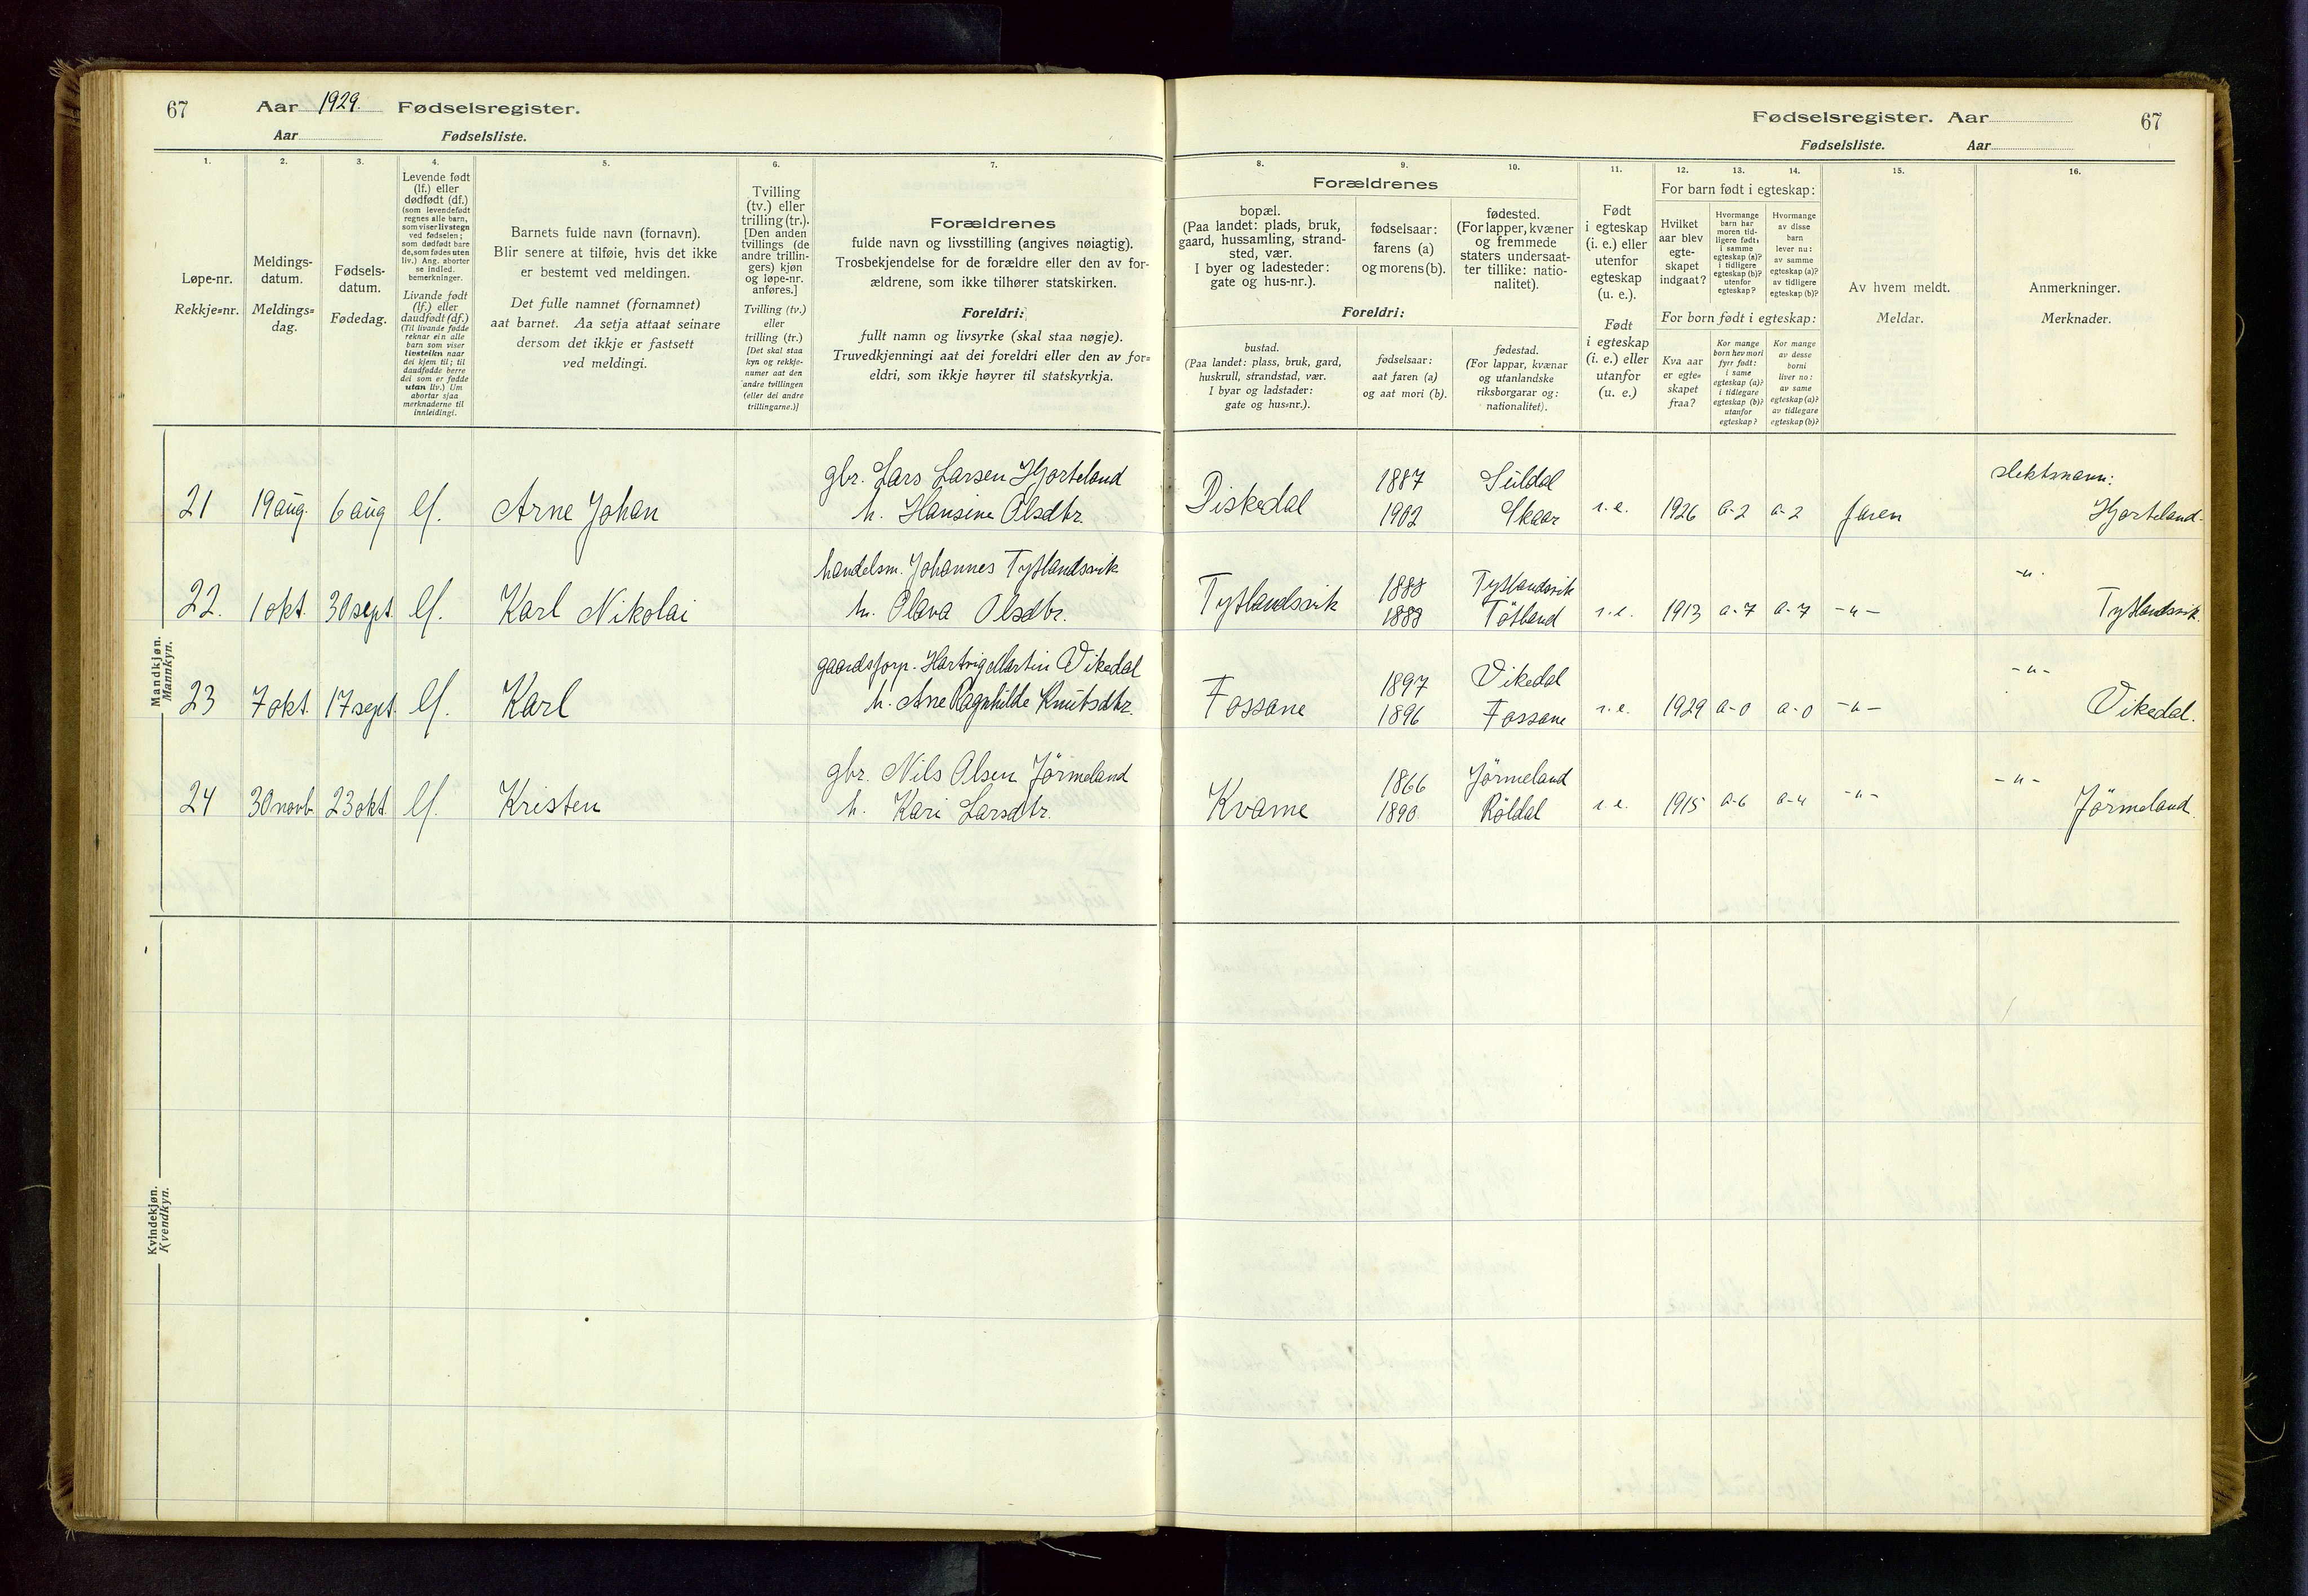 67 Aar 1929. Fødselsregister.
Aar Fødselsliste.
Fødselsregister. Aar 67
Fødselsliste. Aar
1. 2. 3. 4. 5. 6. 7. 8. 9. 10. 11. 12. 13. 14. 15. 16.
Løpe-nr.
Rekkje=nr.
Meldings-
datum.
Meldings=
dag.
Fødsels-
datum.
Fødedag.
Levende født
(lf.) eller
dødfødt (df.)
(som levendefødt
regnes alle barn,
som viser livstegn
ved fødselen;
som dødfødt bare
de, som fødes uten
liv.) Ang. aborter
se indled.
bemerkninger.
Livande født
(lf.) eller
daudfødt (df.)
(Til livande fødde
reknar ein alle
barn som viser
livsteikn naar
dei kjem til; til
daudfødde berre
dei som er fødde
utan liv.) Um
abortar sjaa
merknaderne til
innleidingi.
Barnets fulde navn (fornavn).
Blir senere at tilføie, hvis det ikke
er bestemt ved meldingen.
Det fulle namnet (fornamnet)
aat barnet. Aa setja attaat seinare
dersom det ikkje er fastsett
ved meldingi.
Tvilling
(tv.) eller
trilling (tr.).
[Den anden
tvillings (de
andre trillin-
gers) kjøn
og løpe-nr.
anføres.]
Tvilling (tv.)
eller
trilling (tr.)
[Det skal staa
kyn og rekkje-
numer aat den
andre tvillingen
(eller dei andre
trillingarne.)]
Forældrenes
fulde navn og livsstilling (angives nøiagtig).
Trosbekjendelse for de forældre eller den av for-
ældrene, som ikke tilhører statskirken.
Foreldri:
fullt namn og livsyrke (skal staa nøgje).
Truvedkjenningi aat dei foreldri eller den av for=
eldri, som ikkje høyrer til statskyrkja.
Forældrenes
bopæl.
(Paa landet: plads, bruk,
gaard, hussamling, strand-
sted, vær.
I byer og ladesteder:
gate og hus-nr.).
fødselsaar:
farens (a)
og morens (b).
fødested.
(For lapper, kvæner
og fremmede
staters undersaat-
ter tillike: natio-
nalitet).
Foreldri:
bustad.
(Paa landet: plass, bruk, gard,
huskrull, strandstad, vær.
I byar og ladstader:
gate og hus=nr.).
fødselsaar:
aat faren (a)
og aat mori (b).
fødestad.
(For lappar, kvænar
og utanlandske
riksborgarar og:
nationalitet).
Født
i egteskap
(i. e.) eller
utenfor
egteskap
(u. e.).
Født
i egteskap
(i. e.) eller
utanfor
(u. e.)
For barn født i egteskap:
Hvilket
aar blev
egte-
skapet
indgaat?
Hvormange
barn har
moren tid-
ligere født:
i samme
egteskap (a)?
i tidligere
egteskap (b)?
utenfor
egteskap?
Hvormange
av disse
barn
lever nu:
av samme
egteskap (a)?
av tidligere
egteskap (b)?
For born født i egteskap:
Kva aar
er egte=
skapet
fraa?
Kor mange
born hev mori
fyr født:
i same
egteskap (a)?
i tidlegare
egteskap (b)?
utanfor
egteskap?
Kor mange
av desse
borni
liver no:
av same
egteskap (a)?
av tidlegare
egteskap (b)?
Av hvem meldt.
Meldar.
Anmerkninger.
Merknader.
Mandkjøn.
Mannkyn.
gbr. Lars Larsen Hjorteland 1887 Suldal slektsnavn:
21 19 aug. 6 aug lf. Arne Johan h. Hansine Olsdtr. Diskedal 1902 Skaar i.e. 1926 a-2 a-2 faren Hjorteland.
handelsm. Johannes Tyslandsvik 1888 Tyslandsvik -"-
22. 1 okt. 30 sept. lf. Karl Nikolai h. Olava Olsdtr. Tyslandsvik 1888 Tösland i.e. 1913 a-7 a-7 -"- Tyslandsvik.
gaardsforp. Hartvig Martin Vikedal 1897 Vikedal -"-
23 7 okt. 17 sept. lf. Karl h. Ane Ragnhilde Knutsdtr. Fossane 1896 Fossane i.e. 1929 a-0 a-0 -"- Vikedal.
gbr. Nils Olsen Jörmeland 1866 Jörmeland -"-
24 30 novb. 23 okt. lf. Kristen h. Kari Larsdtr. Kvame 1890 Röldal i.e. 1915 a-6 a-4 -"- Jörmeland.
Kvindekjøn.
Kvendkyn.